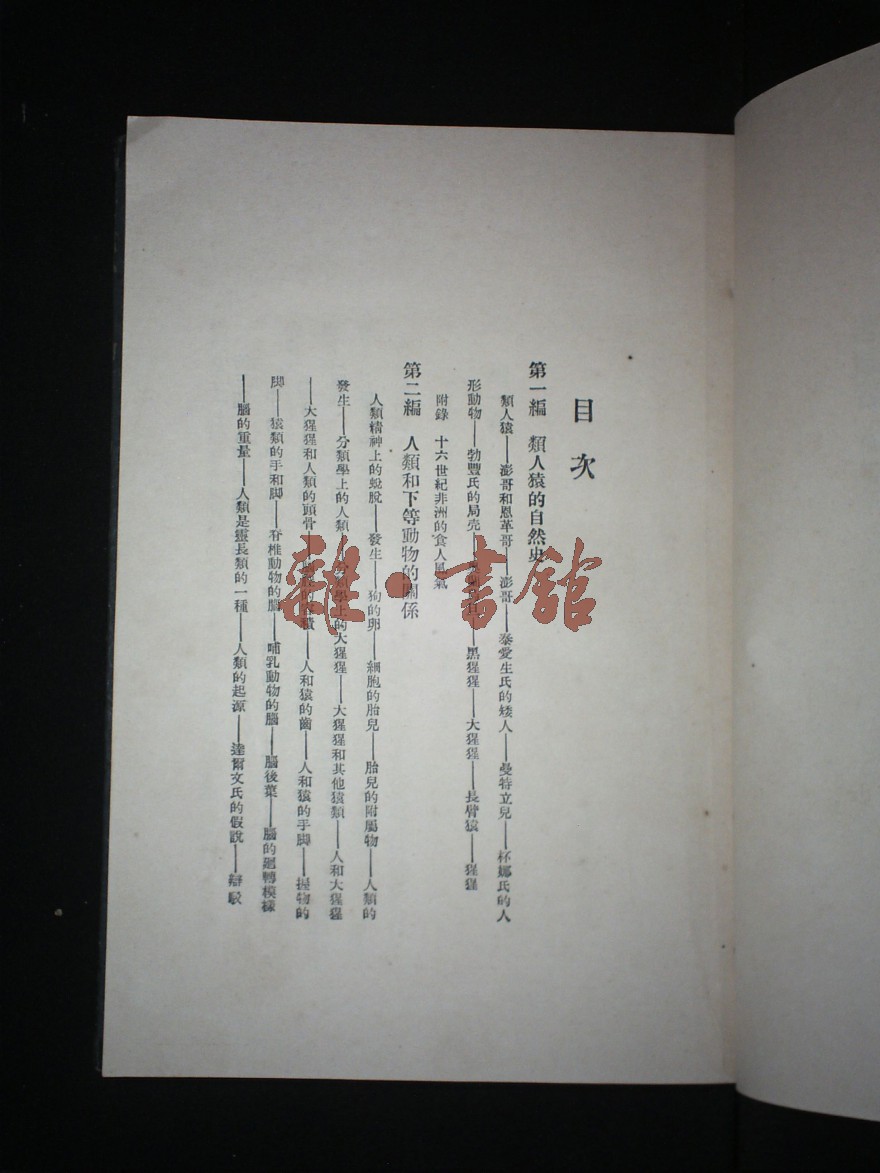 目次
第一編 類人猿的自然史
類人猿——澎哥和恩革哥——澎哥——泰愛生氏的矮人——曼特立兒——杯娜氏的人
形動物——勃豐氏的局壳——黑猩猩——大猩猩——長臂猿——猩猩
附錄 十六世紀非洲的食人風氣
第二編 人類和下等動物的關係
人類精神上的蛻脫——發生——狗的卵——細胞的胎兒——胎兒的附屬物——人類的
發生——分類學上的人類——分類學上的大猩猩——大猩猩和其他猿類——人和大猩猩
——大猩猩和人類的頭骨——人和猿的齒——人和猿的手脚——握物的
脚——猿類的手和脚——脊椎動物的腦——哺乳動物的腦——腦後葉——腦的廻轉模樣
——腦的重量——人類是靈長類的一種——人類的起源——達爾文氏的假說——辯駁
雜·書館